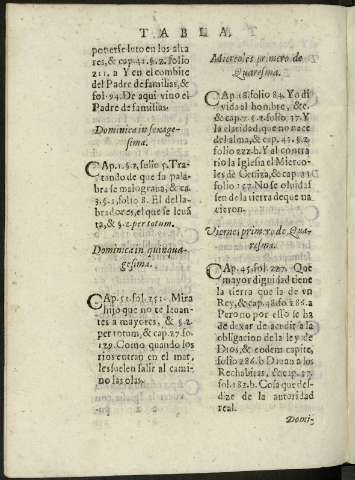 TABLA.
ponerse luto en los alta
res, & cap. 41. §. 2. folio
211. a Y en el combite
del Padre de familias, &
fol. 94. De aqui vino el
Padre de familias.
Dominica in sexage-
sima.
CAp. 1. §. 2. folio 5. Tra-
tando de que su pala-
bra se malograua, & ca.
3. §. 1, folio 8. El del la-
brador es, el que se leuã
ta, & §. 2. per totum.
Dominica in quinqua-
gesima.
CAp. 51. fol. 251. Mira
hijo que no te leuan-
tes a mayores, & §. 2.
per totum, & cap. 27. fo.
129. Como quando los
rios entran en el mar,
les suelen salir al cami-
no las olas.
Miercoles primero de
Quaresima.
CAp. 18. folio 84. Y di
vida al hombre, &c.
& cap. 7. §. 2. folio 37. Y
la claridad, que no nace
del alma, & cap. 43. folio
222. b. Y al contra
rio la Iglesia el Mierco-
les de Ceniza, & cap. 43
folio 157. No se oluidas
sen de la tierra de que na
cieron.
Viernes primero de Qua-
resma.
CAp. 45. fol. 227. Que
mayor dignidad tiene
la tierra que la de vn
Rey, & cap. 48. fo 286. a
Pero no por esso se ha
de dexar de acudir a la
obligacion de la ley de
Dios, & eodem capite,
folio 286. b Dieron a los
Rechabitas, & cap. 37.
fol. 182. b. Cosa que des-
dize de la autoridad
real.
Domi-